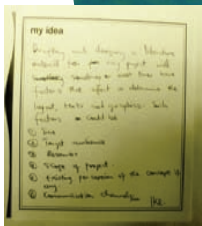 my idea
Briefing and designing a literature
material for any project will
something or
factors that affect or determine the
layout, texts and graphics. Such
factors could be
① Size
② Target audience
③ Resources
④ Scope of project.
⑤ Existing perception of the concept if
any.
⑥ Communication channels